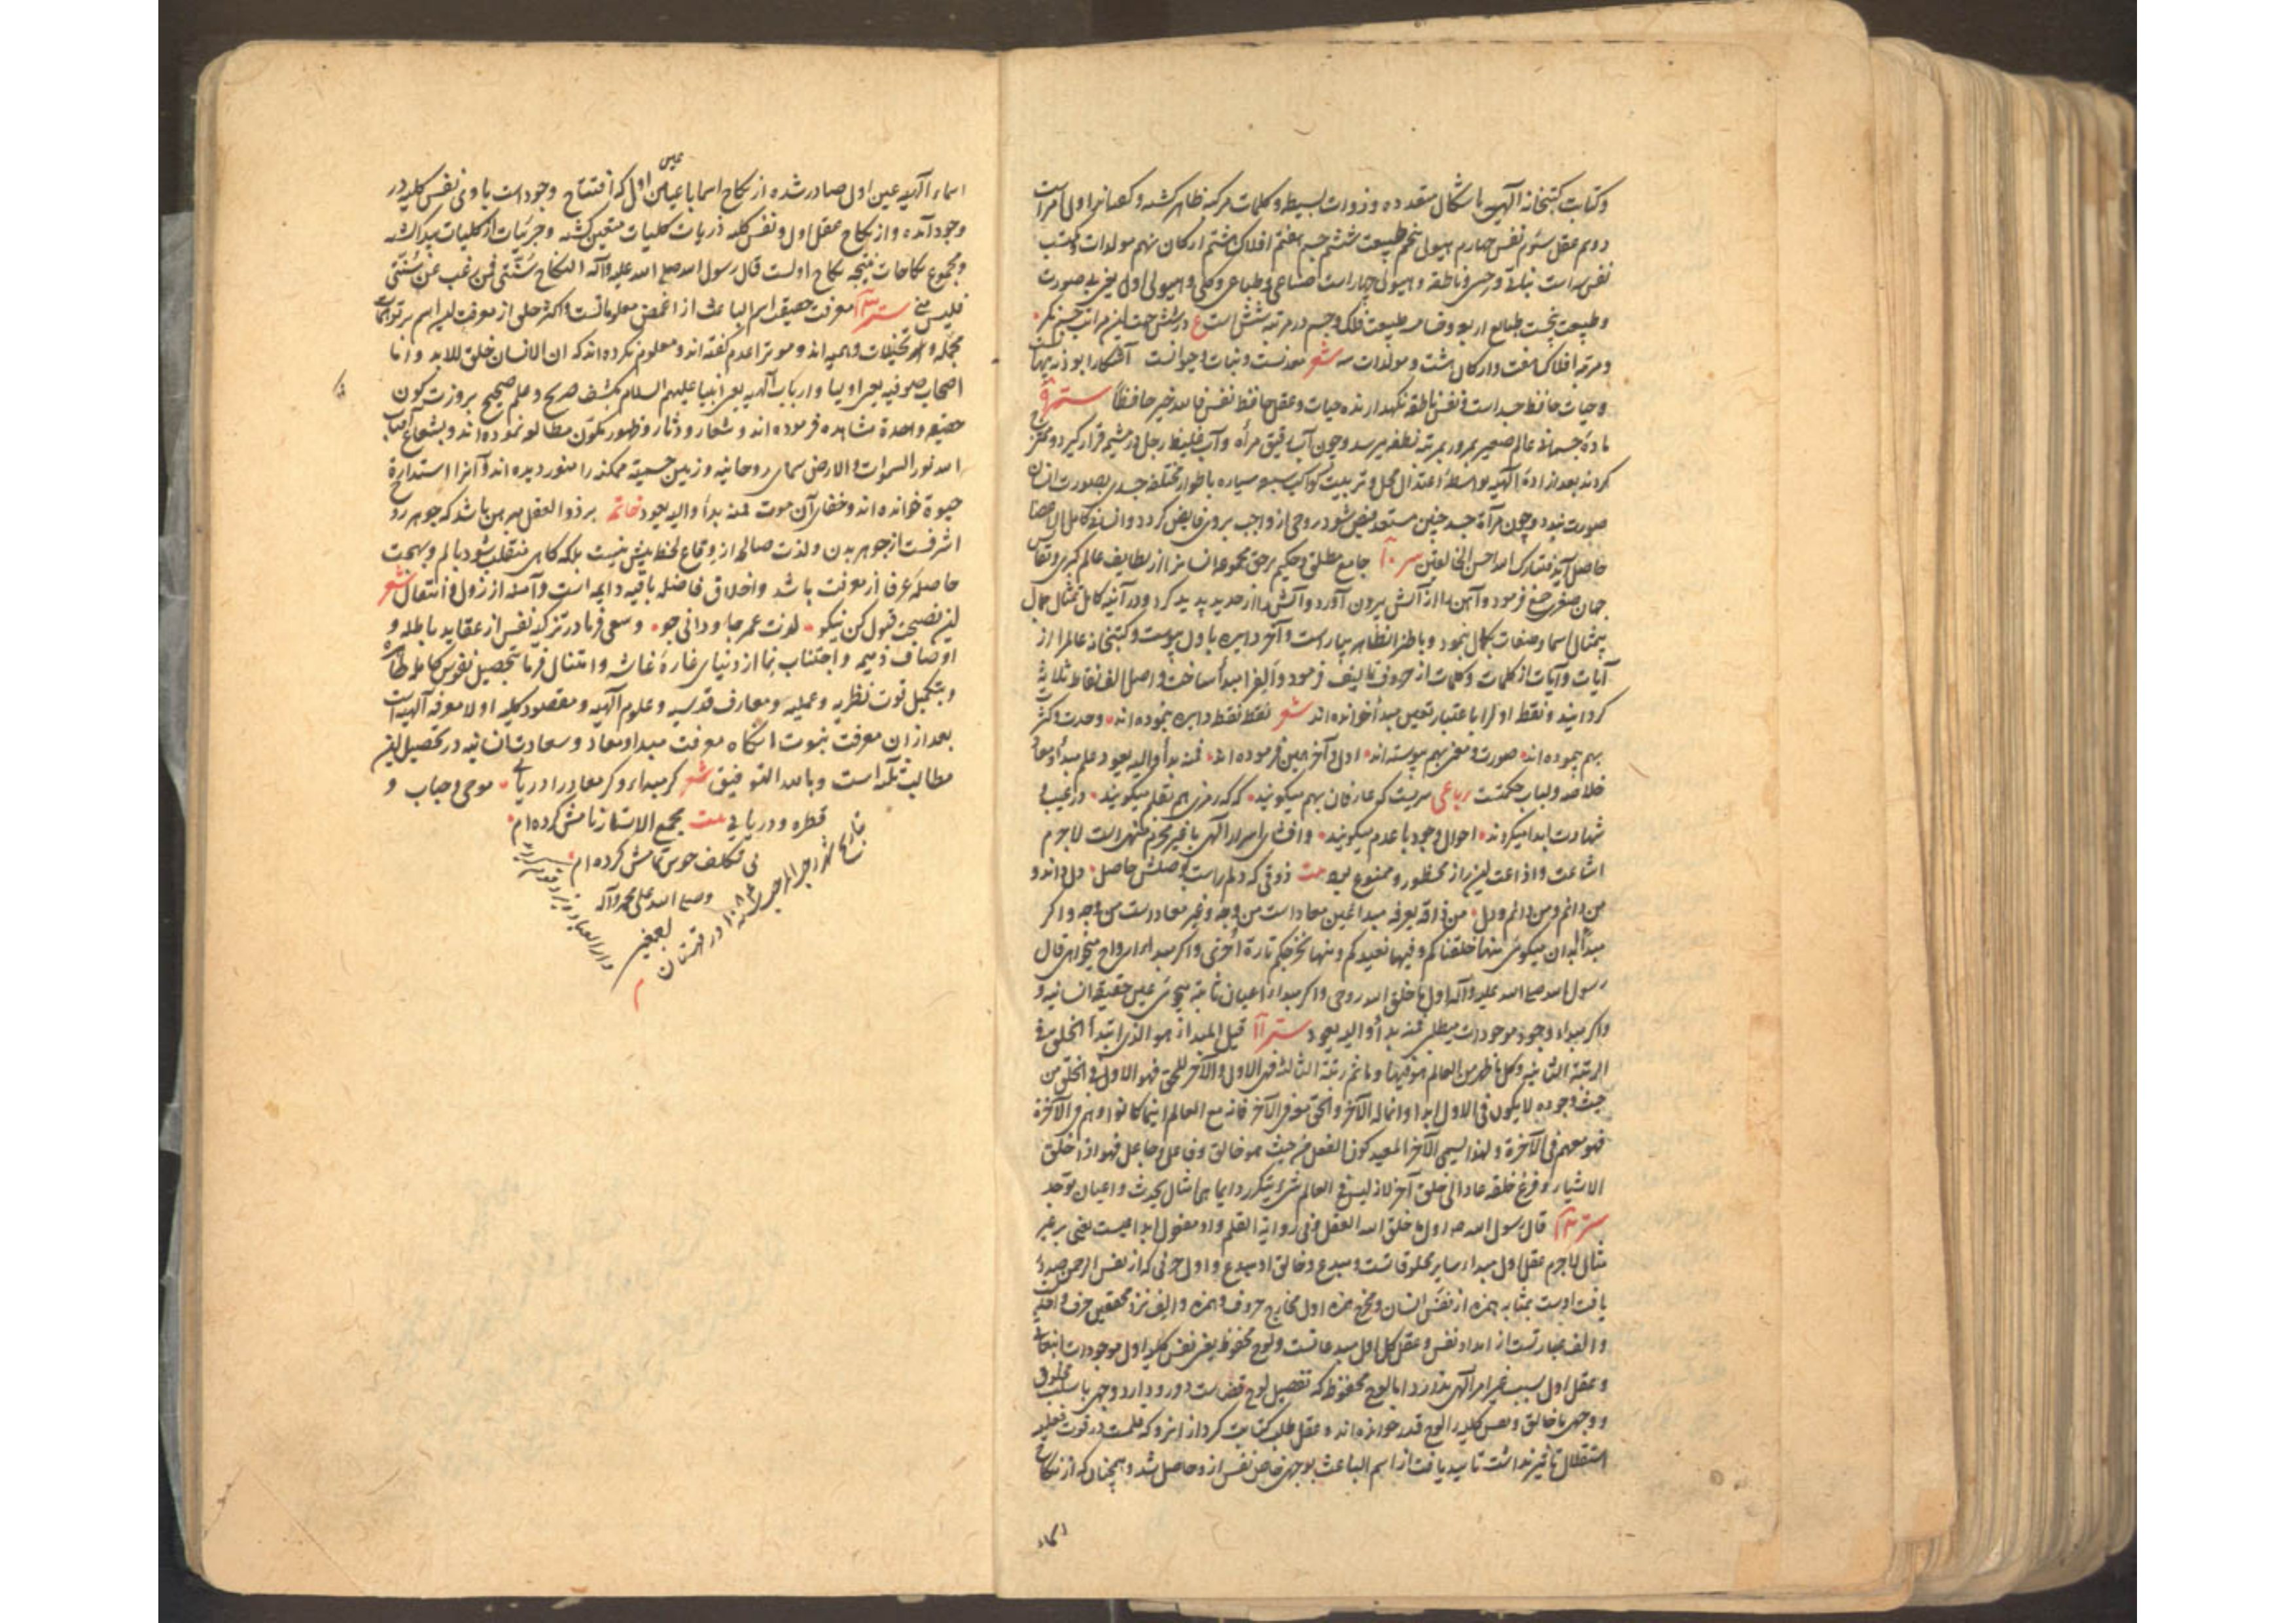 وکتابت کتبخانه الهیه باشکال متعدده و ذوات بسیطه و کلمات مرکبه ظاهر کشته و اولی امر است
دویم عقل سئوم نفس چهارم هیولی پنجم طبیعت ششم جسم هفتم افلاک هشتم ارکان نهم مولدات
نفس سه است نباتی و حسی و ناطقه و هیولی چهار است صناعی و طباعی و کلی و هیولی اول یعنی صورت
و طبیعت پنجست طبایع اربع و خامسه طبیعت فلک و جسم در مرتبه شش است ع در شش جهت این مراتب
و مرتبه افلاک هفت و ارکان هشت و مولدات سه شعر معدنست و نبات و حیوانست آشکارا بود نه پنهان
و حیات حافظ جسد است و نفس ناطقه نکهدارنده حیات و عقل حافظ نفس فالله خیر حافظا سر
ماده جسمانی عالم صغیر بمرور بمرتبه نطفه میرسد و چون آب رقیق مرأه و آب غلیظ رجل در مشیمه قرار کیرد
کردند بعد اراده الهیه بواسطه اعتدال محل و تربیت کواکب سبعه سیاره باطوار مختلفه جسدی بصورت انسان
صورت بندد و چون مرآة جسد جنین مستعد فیض شود روحی از واجب بروی فایض کردد و انسان کامل
حاصل آید فتبارک الله احسن الخالقین سر جامع مطلق و حکیم برحق مجموعه انسانرا از لطایف عالم کبری
جهان صغری جمع فرمود و آهن را از آتش بیرون آورد و آتش را از حدید پدید کرد و در آئینه کامل تمثال جمال
بیمثالی اسما و صفات بکمال بنمود و باطنرا بظاهر بیاراست و آخر دایره باول پیوست و کتبخانه عالم را از
آیات و آیات از کلمات و کلمات از حروف تالیف فرمود و الف را مبدأ ساخت و اصل الف نقاط ثلاثه
کردانید و نقطه اول را باعتبار تعین مبدأ خوانده اند شعر نقطه نقطه دایره بنموده اند وحدت و کثرت
بهم بنموده اند صورت و معنی بهم پیوسته اند اول و آخر همین فرموده اند فمنه بدأ و الیه یعود علم مبدأ و معاد
خلاصه و لباب حکمتست رباعی سریست که عارفان بهم میکویند که که رمزی هم بقلم میکویند در غیب
شهادت ابدا میکروند احوال وجود با عدم میکویند و افشای اسرار الهی با غیر محرم منهی است لاجرم
اشاعت و اذاعت این راز محظور و ممنوع بیت ذوقی که دلم راست بوصلش حاصل دل داند و
من دانم و من دانم و دل من ذاقه یعرفه مبدأ عین معاد است من وجه و غیر معاد است من وجه و اکر
مبدأ ابدان میکوئی منها خلقناکم و فیها نعیدکم و منها نخرجکم تارة اخری و اکر مبدأ ارواح میخواهی قال
رسول الله صلی الله علیه و آله اول ما خلق الله روحی و اکر مبداء اعیان ثابته میجوئی عین حقیقة انسانیه و
و اکر مبداء وجود موجودات میطلبی فمنه بدأ و الیه یعود سر ۱۱ قیل المبدأ هو الذی ابتدأ الخلق فی
الرتبة الثانیه و کل ما ظهر من العالم هو فیها و ما ثم رتبة الثالثة فهی الاول و الآخر للحق فهو الاول و الخلق من
حیث وجوده لا یکون فی الاول ابدا و انما له الآخر و الحق معه فی الآخر فانه مع العالم اینما کانوا و هم فی الآخرة
فهو معهم فی الآخرة و لهذا یسمی الآخر المعید کون الفعل من حیث هو خالق و فاعل و جاعل فهو اذا خلق
الاشیاء و فرغ خلقه عاد الی خلق آخر لانه لیس فی العالم شئ یتکرر دایما هی امثال یحدث و اعیان توجد
سر قال رسول الله ص اول ما خلق الله العقل و فی روایة القلم و او مفعول ابداعیست یعنی بر غیر
مثالی لاجرم عقل اول مبداء سایر مخلوقاتست و مبدع و خالق او مبدع و اول حرفی که از نفس الرحمن صدور
یافت اوست بمثابه همزه از نفس انسان و مخرج همزه اول مخارج حروف و همزه و الف نزد محققین حرف واحد
و الف عبارتست از امداد نفس و عقل کل اول مبدعاتست و لوح محفوظ یعنی نفس کلیه اول موجودات
و عقل اول سبب غیر امر الهی ندارد اما لوح محفوظ که تفصیل لوح قضاست دو رو دارد وجهی با سبب مخلوق
و وجهی با خالق و نفس کلیه را لوح قدر خوانده اند و عقل طلب کتابت کرد از انرو که قلمست در قوت فعلیه
استقلال تأثیر نداشت تأیید یافت از اسم الباعث بوجهی خاص نفس ازو حاصل شد و همچنان که از نکاح
اسماء
اسماء الهیه عین اول صادر شده از نکاح اسما با عین اول که افتتاح وجود است باو نی نفس کلیه در
وجود آمده و از نکاح عقل اول و نفس کلیه ذریات کلیات متعین کشته و جزئیات از کلیات پیدا کشته
و مجموع نکاحات نتیجه نکاح اولست قال رسول الله صلی الله علیه و آله النکاح سنتی فمن رغب عن سنتی
فلیس منی سر معرفت حقیقت اسم الباعث از اغمض معلوماتست و اکثر خلق از معرفت این اسم
مجمله و تخیلات وهمیه اند و موت را عدم کفته اند و معلوم نکرده اند که ان الانسان خلق للابد و اما
اصحاب صوفیه یعنی اولیا و ارباب الهیه یعنی انبیا علیهم السلام بکشف صریح و علم صحیح بروزت کون
حقیقه واحدة مشاهده فرموده اند و شعار و دثار و ظهور تکون مطالعه نموده اند و بشعاع آفتاب
الله نور السموات و الارض سمای روحانیه و زمین جسمیة ممکنه را منور دیده اند و آنرا استدارة
حیوة خوانده اند و خفای آن موت فمنه بدأ و الیه یعود خاتمه بر ذوا العقل مبرهن باشد که جوهر روح
اشرفست از جوهر بدن و لذت صالحه از وقاع لحظه بیش نیست بلکه کاهی منقلب شود بالم و بهجت
حاصله عرفا از معرفت باشد و اخلاق فاضله باقیه دایمه است و آمنه از زوال و انتقال شعر
این نصیحت قبول کن نیکو لذت عمر جاودانی جو و سعی فرما در تزکیه نفس از عقاید باطله و
اوصاف ذمیمه و اجتناب نما از دنیای غاره غاشه و امتثال فرما بتحصیل نفوس کامله طاهره
و بتکمیل قوت نظریه و عملیه و معارف قدسیه و علوم الهیه و مقصود کلیه اولا معرفة الهیه است
بعد از ان معرفت نبوت انکاه معرفت مبدا و معاد و سعادت انسانیه در تحصیل این
مطالب ثلثه است و بالله التوفیق شعر کر مبداء و کر معاد را دریابی موجی و حبابی و
قطره و دریایی بیت مجمع الاسرار نامش کرده ام
بی تکلف خوش تمامش کرده ام
و صلی الله علی محمد و آله
اجمعین
بتاریخ شهر رجب المرجب سنه ۱۰۸۴ در قهستان
دار العباد یزد
م